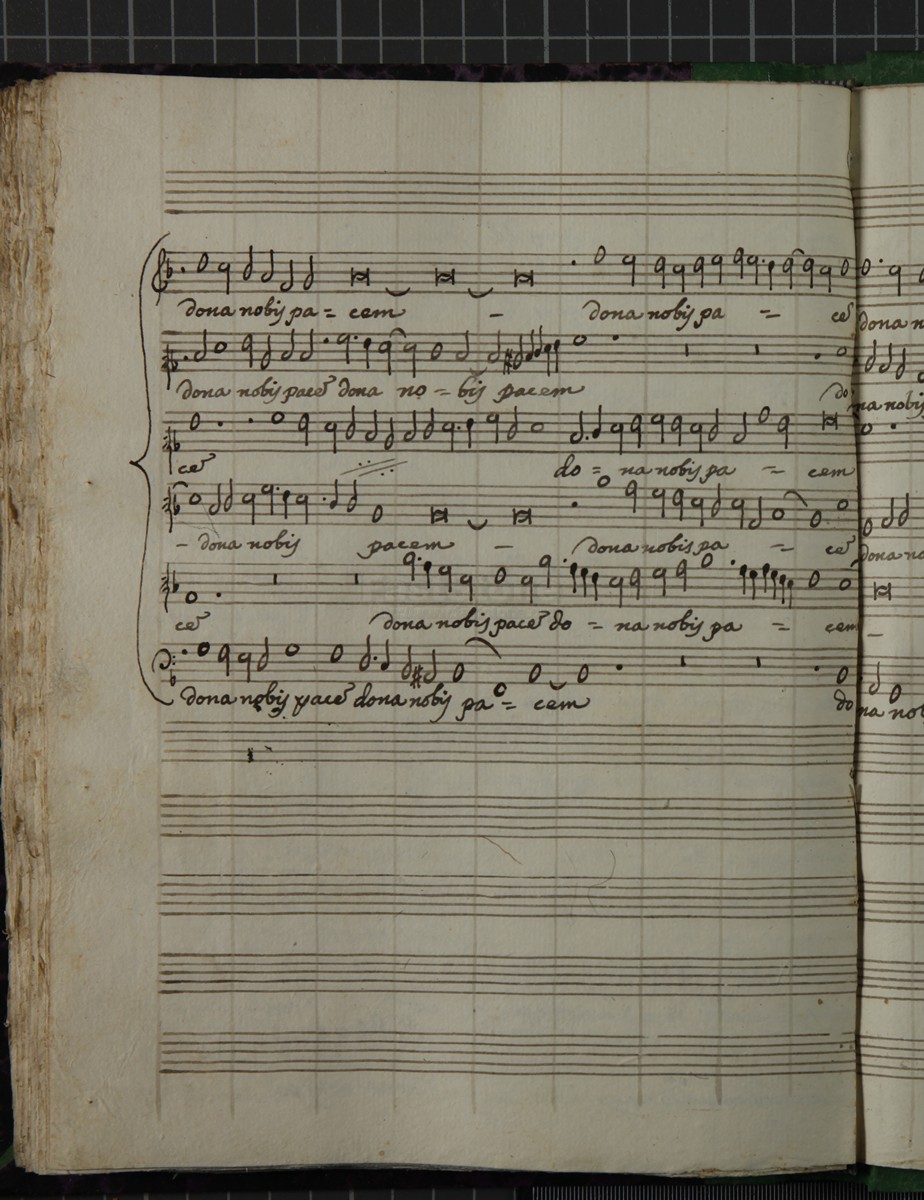 dona nobis pa = cem - dona nobis pa = cē
dona nobis pacē dona no = bis pacem do
cē do = na nobis pa = cem
- dona nobis pacem - dona nobis pa = cē
cē dona nobis pacē do = na nobis pa = cem
dona nobis pacē dona nobis pa = cem do
dona n
na nobis
dona na
-
na nob